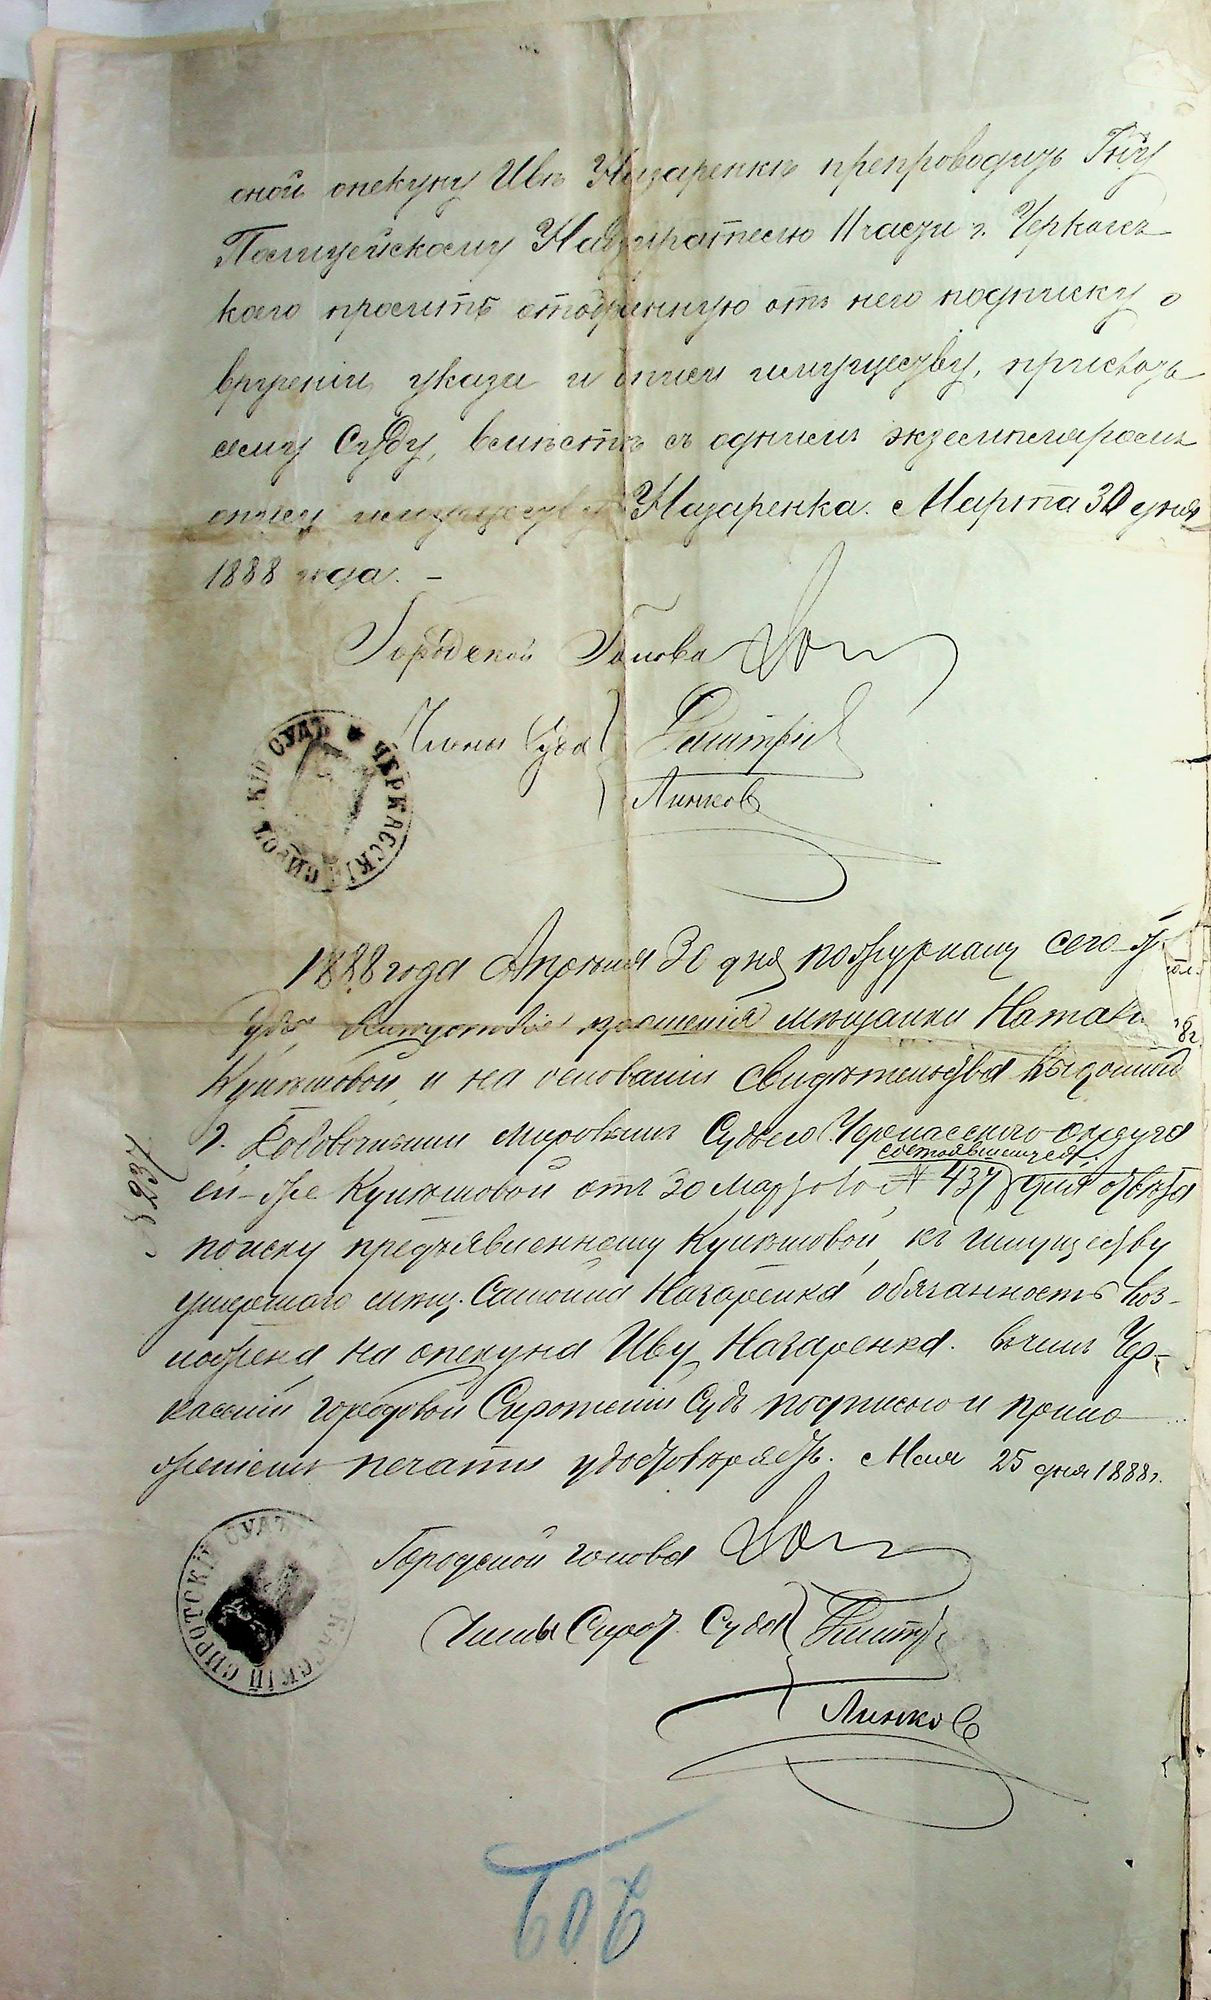 оной опекуну Ивѣ Назаренкѣ препроводить Гну
Полицейскому Надзирателю II части г. Черкасъ
коего просить отобранную отъ него подписку о
врученіи указа и описи имуществу, прислать
сему Суду, вмѣстѣ съ однимъ экземпляромъ
описи имущества Назаренка. Марта 30 дня
1888 года. –
Городской Голова
Члены Суда Дмитріе
Линков
ЧЕРКАССКІЙ СИРОТСКІЙ СУДЪ
1888 года Апрѣля 30 дня по журналу сего
Суда, прошенія мѣщанки Натальи
Куликовой, и на основаніи свидѣтельства выданнаго
г. Мировымъ Судьею Черкасскаго округа
состоявшимся,
ей-же отъ 30 Марта за № 437 для отвѣта
по иску предъявленному къ имуществу
умершаго мѣщ. Самойла Назаренка обязанность воз-
ложена на опекуна Иву Назаренка. въ чемъ Чер-
касскій городовой Сиротскій Судъ подписью и прило
женіемъ печати удостовѣряетъ. Мая 25 дня 1888 г.
№ 237
Городской голова
Члены Сирот. Суда Дмитр
Линков
ЧЕРКАССКІЙ СИРОТСКІЙ СУДЪ